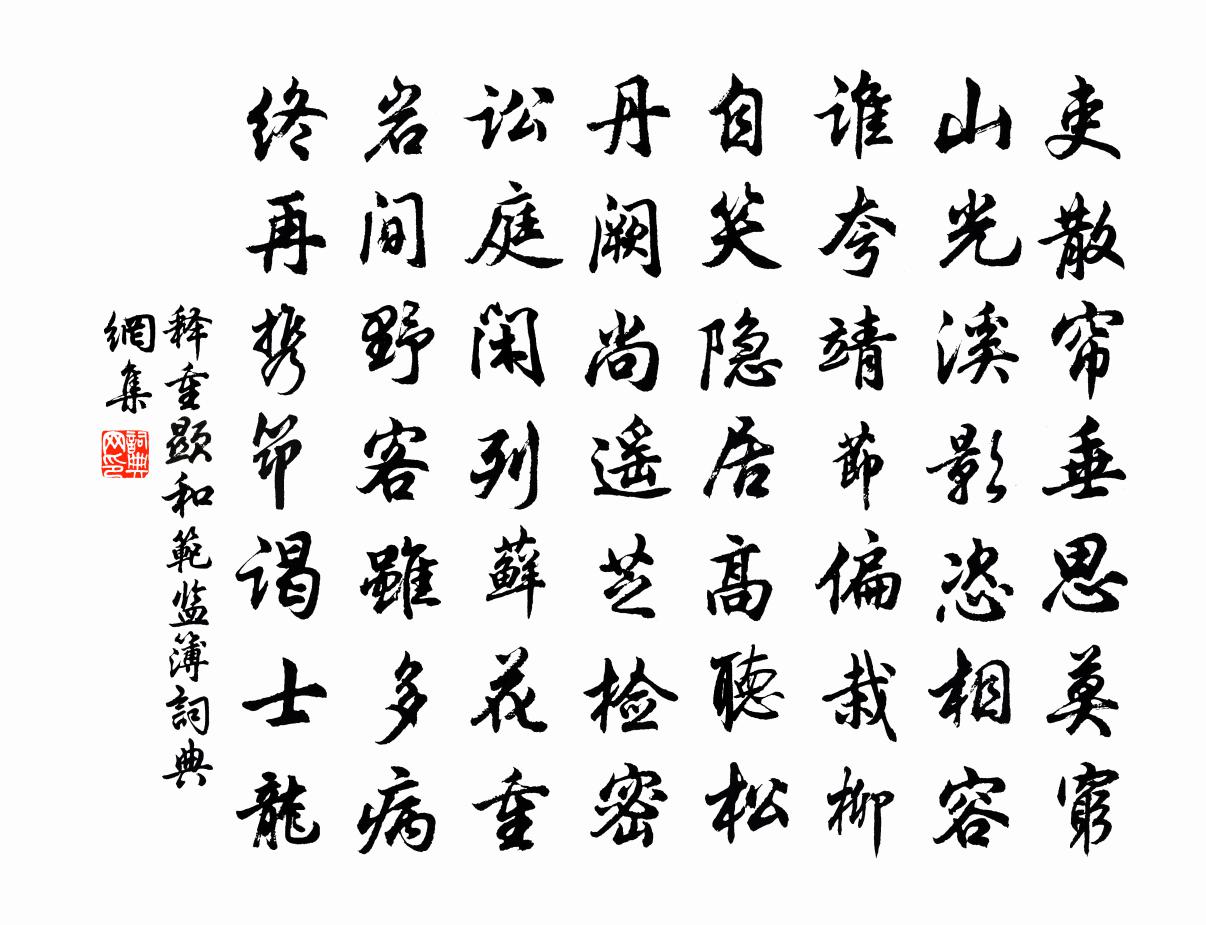 吏散帘垂思莫穷
山光溪影恣相容
谁夸靖节偏栽柳
自笑隐居高聽松
丹阙尚遥芝检密
讼庭闲列蘚花重
岩间野客雖多病
终再携笻谒士龍
释重显和範监簿詞典
網集
詞典网印